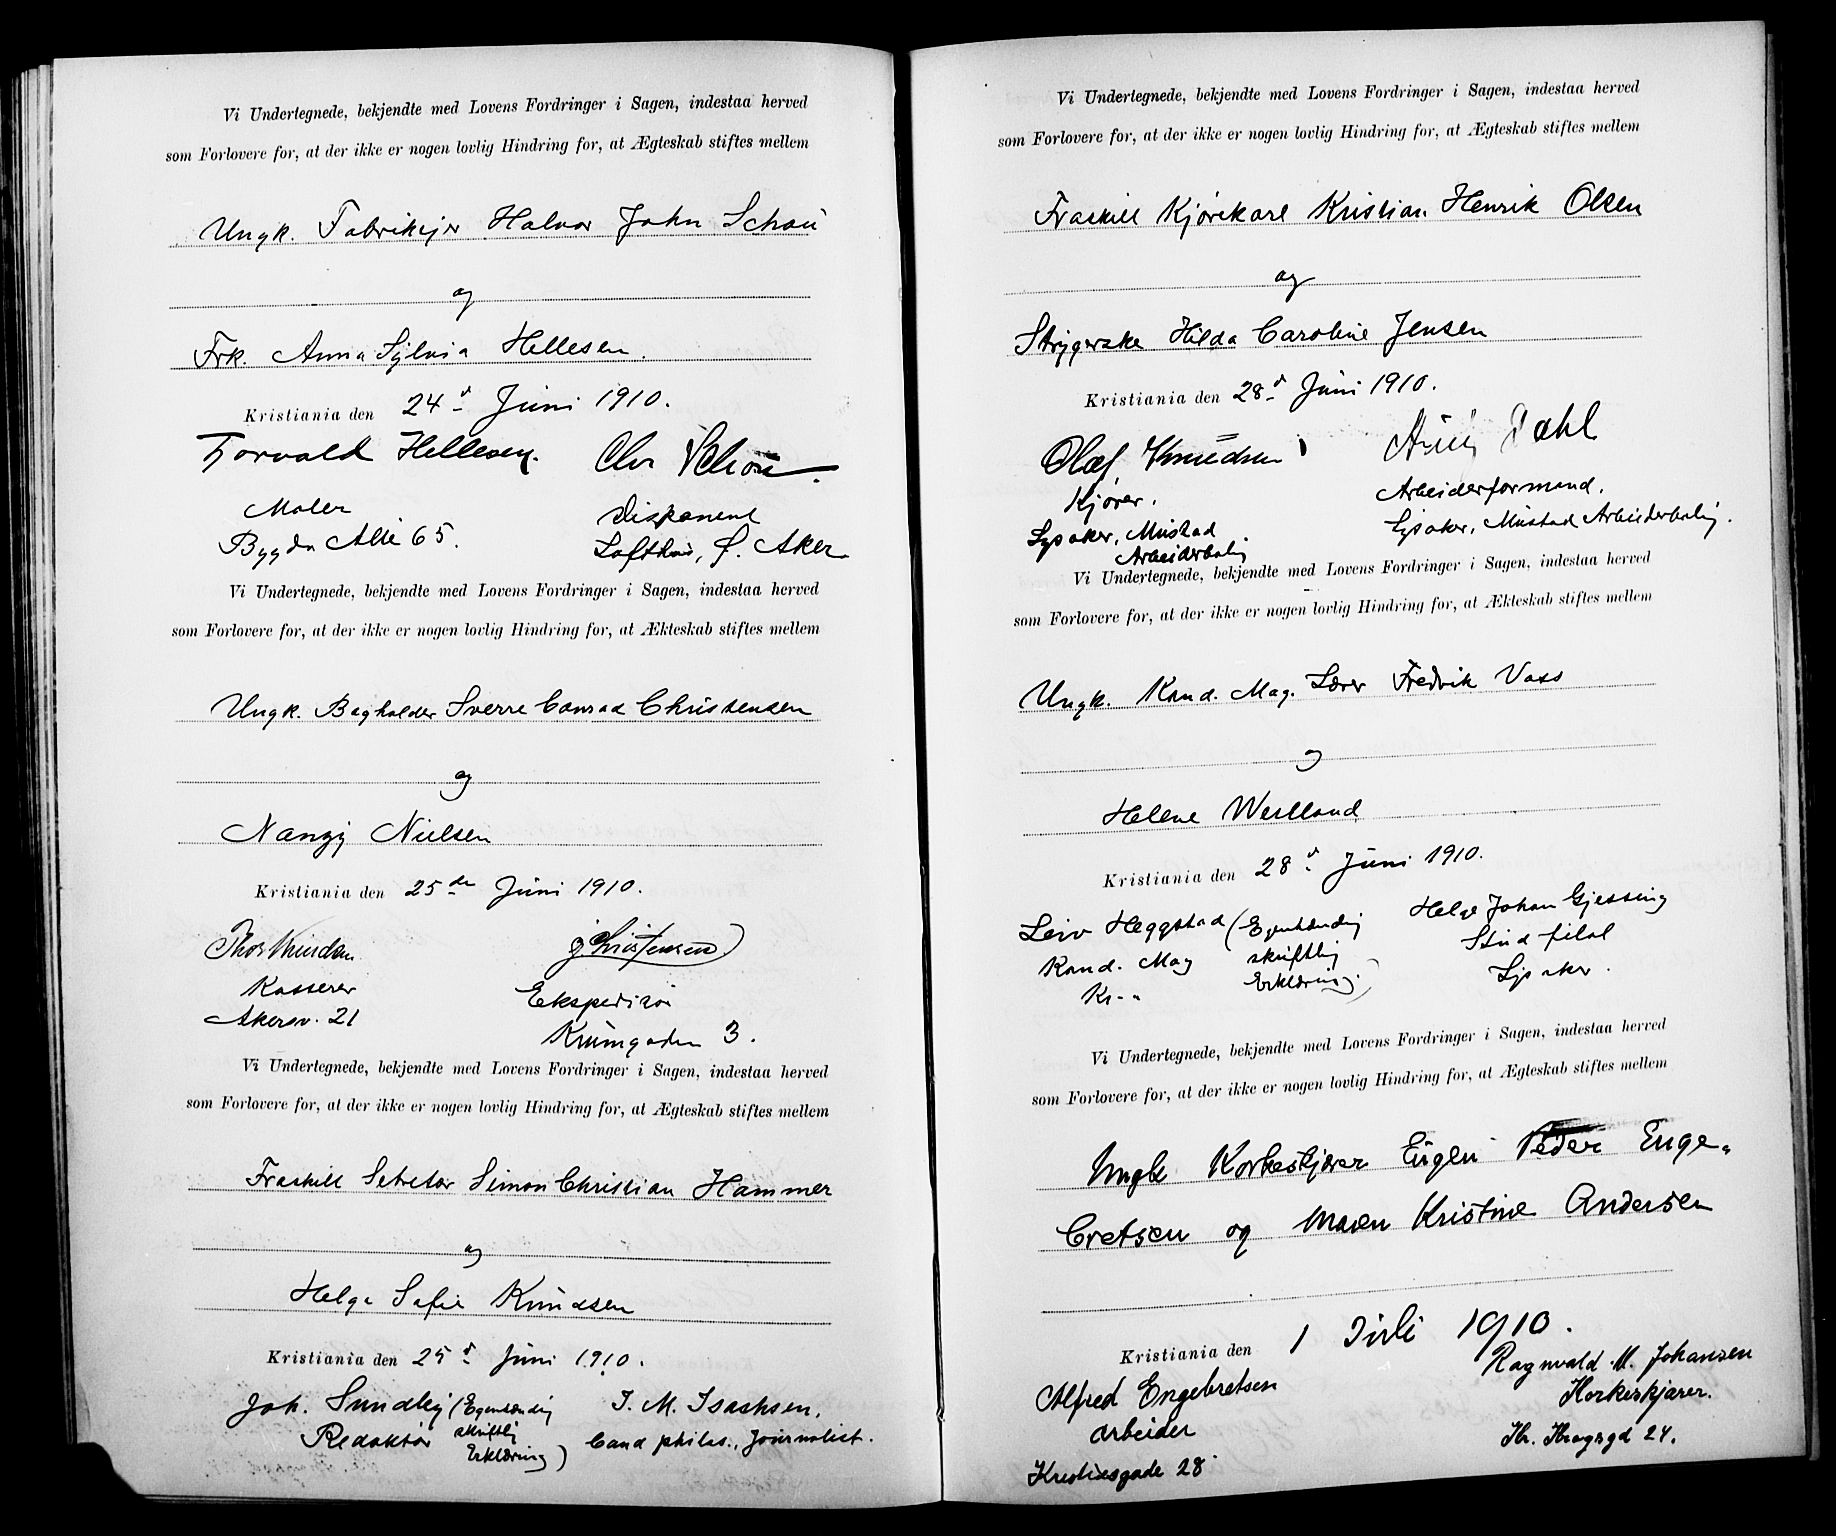 Vi Undertegnede, bekjendte med Lovens Fordringer i Sagen, indestaa herved
som Forlovere for, at der ikke er nogen lovlig Hindring for, at Ægteskab stiftes mellem
Ungk. Fabrikejer Halvor John Schou
og
Frk. Anna Sylvia Hellesen.
Kristiania den 24d Juni 1910.
Torvald Hellesen. Chr Schou.
Maler Disponent
Bygdø Allé 65. Lofthus, Ø. Aker
Vi Undertegnede, bekjendte med Lovens Fordringer i Sagen, indestaa herved
som Forlovere for, at der ikke er nogen lovlig Hindring for, at Ækteskab stiftes mellem
Ungk. Bogholder Sverre Conrad Christensen
og
Nanzy Nielsen
Kristiania den 25de Juni 1910.
Thor Knudsen J. Christensen
Kasserer Ekspeditør
Akersv. 21 Krumgaden 3.
Vi Undertegnede, bekjendte med Lovens Fordringer i Sagen, indestaa herved
som Forlovere for, at der ikke er nogen lovlig Hindring for, at Ægteskab stiftes mellem
Fraskilt Sekretær Simon Christian Hammer
og
Helga Sofie Knudsen
Kristiania den 25d Juni 1910.
Joh. Sundby (Egenhændig J. M. Isachsen.
Redaktør skriftlig Cand philos., Journalist.
Erklæring)
Vi Undertegnede, bekjendte med Lovens Fordringer i Sagen, indestaa herved
som Forlovere for, at der ikke er nogen lovlig Hindring for, at Ægteskab stiftes mellem
Fraskilt Kjørekarl Kristian Henrik Olsen
og
Strygerske Hilda Caroline Jensen
Kristiania den 28d Juni 1910.
Olaf Knudsen Dahl
Kjører. Arbeiderformand.
Lysaker, Mustad Lysaker, Mustad Arbeiderbolig.
Arbeiderbolig
Vi Undertegnede, bekjendte med Lovens Fordringer i Sagen, indestaa herved
som Forlovere for, at der ikke er nogen lovlig Hindring for, at Ækteskab stiftes mellem
Ungk. Kand. Mag. Lærer Fredrik Voss
og
Helene Westland
Kristiania den 28d Juni 1910.
Leiv Heggstad (Egenhændig Helge Johan Gjessing
Kand. Mag skriftlig Stud filol
Kr.a Erklæring.) Lysaker.
Vi Undertegnede, bekjendte med Lovens Fordringer i Sagen, indestaa herved
som Forlovere for, at der ikke er nogen lovlig Hindring for, at Ægteskab stiftes mellem
Ungk Korkeskjærer Eugen Peder Enge-
bretsen og Maren Kristine Andersen
Kristiania den 1 Juli 1910.
Alfred Engebretsen Ragnvald M. Johansen
arbeider Korkeskjærer.
Kristiesgade 28 Kr. Krogsgd 24.